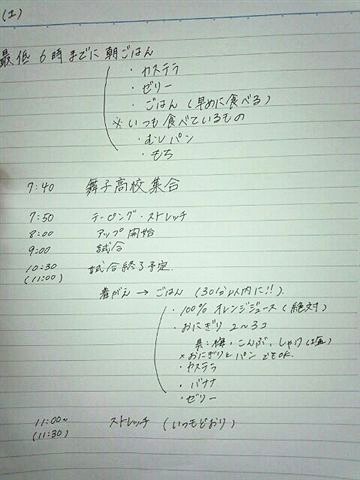 (1)
最低6時までに朝ごはん
・カステラ
・ゼリー
・ごはん(早めに食べる)
※いつも食べているもの
・むしパン
・もち
7:40 舞子高校集合
7:50 テーピング・ストレッチ
8:00 アップ開始
9:00 試合
10:30 試合終了予定
(11:00)
着がえ → ごはん (30分以内に!!)
・100% オレンジジュース(絶対)
・おにぎり 2~3コ
具:梅・こんぶ、しゃけ
※おにぎりとパンでもOK
・カステラ
・バナナ
・ゼリー
11:00~ ストレッチ (いつもどおり)
(11:30)